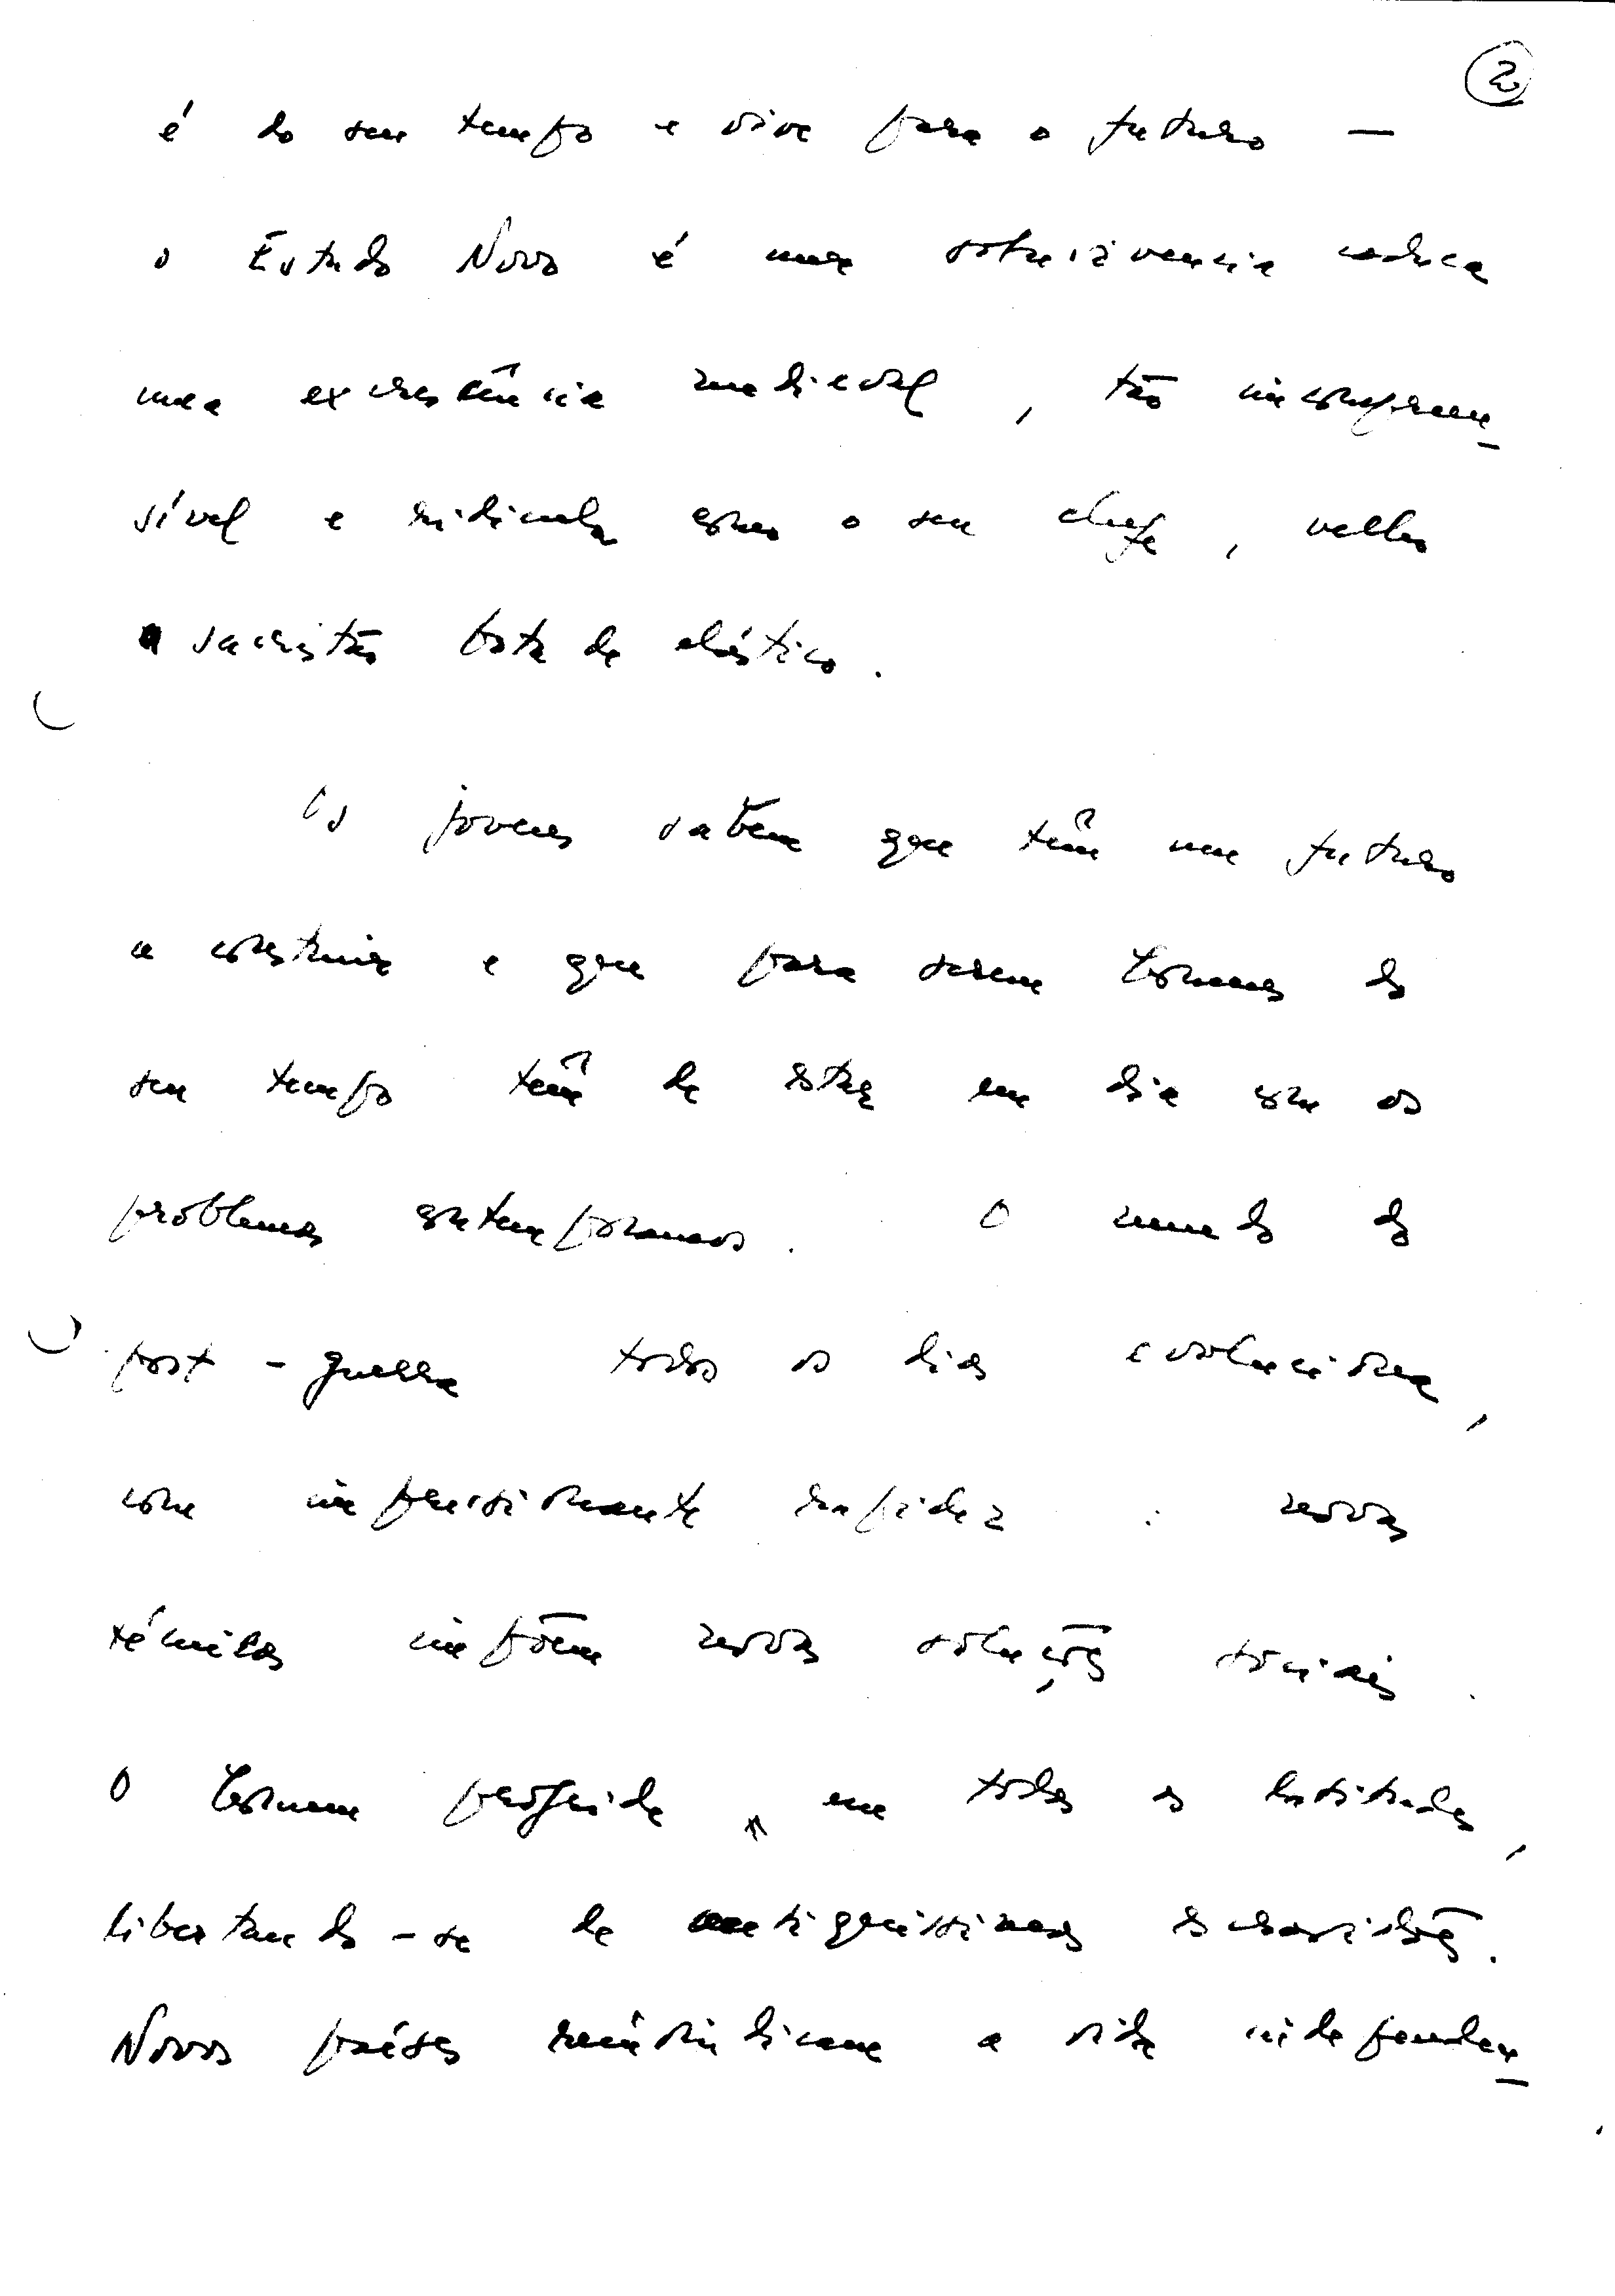 2
é do seu tempo e vive para o futuro —
o Estado Novo é uma sobrevivencia caduca
uma excrescência medieval, tão incompreen-
sível e ridícula como o seu chefe, velho
sacristão bota de elástico.
Os jovens sabem que têm um futuro
a construir e que para serem homens do
seu tempo têm de estar em dia com os
problemas contemporaneos. O mundo do
post-guerra todos os dias evoluciona,
com impressionante rapidez: novas
técnicas impõem novas soluções sociais.
O homem progride em todas as latitudes,
libertando-se de antiquissimas escravidões.
Novos países reivindicam a vida independen-